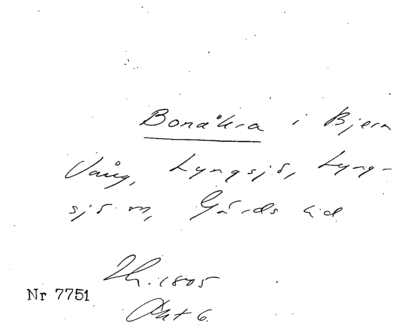 Bonåkra i Bjera
Vång, Lyngsjö, Lyng-
sjö sn, Gärds hd
Nr 7751
Akt 6